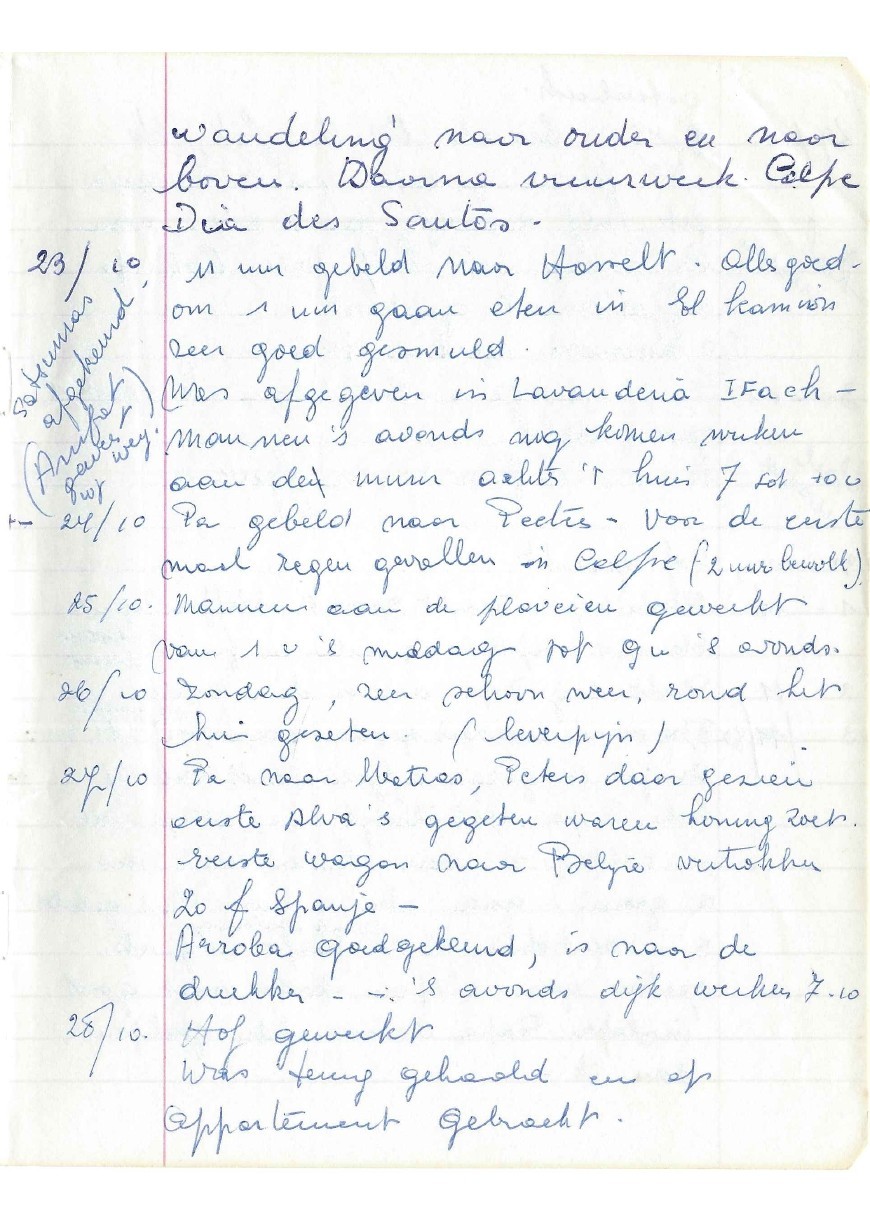 wandeling naar onder en naar
boven. Daarna vuurwerk. Calpe
Dia des Santos -
23/10. 11 uur gebeld naar Hasselt. Alles goed -
om 1 uur gaan eten in El kamion
zeer goed gesmuld.
Was afgegeven in Lavanderia IFach -
Mannen 's avonds nog komen werken
aan de muur achter 't huis 7 tot 10 u
Satsumas
afgekeurd.
(Arrufat
weg.)
24/10 Pa gebeld naar Peeters - Voor de eerste
maal regen gevallen in Calpe (2 uur bewolkt)
25/10. Mannen aan de plaveien gewerkt
van 1 u 's middag tot 9 u 's avonds.
26/10 Zondag, zeer schoon weer, rond het
huis gezeten. (leverpijn)
27/10 Pa naar Matias, Peters daar gezien
eerste Alva's gegeten waren honing zoet.
eerste wagon naar België vertrokken
20 f Spanje -
Arroba goedgekeurd, is naar de
drukker - - 's avonds dijk werken 7-10
28/10. Hof gewerkt
Was terug gehaald en op
appartement gebracht.